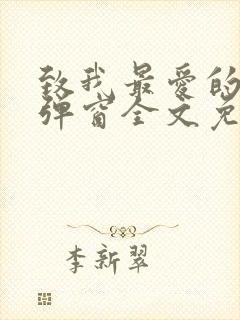 致我最爱的
弹窗全文免
李新翠